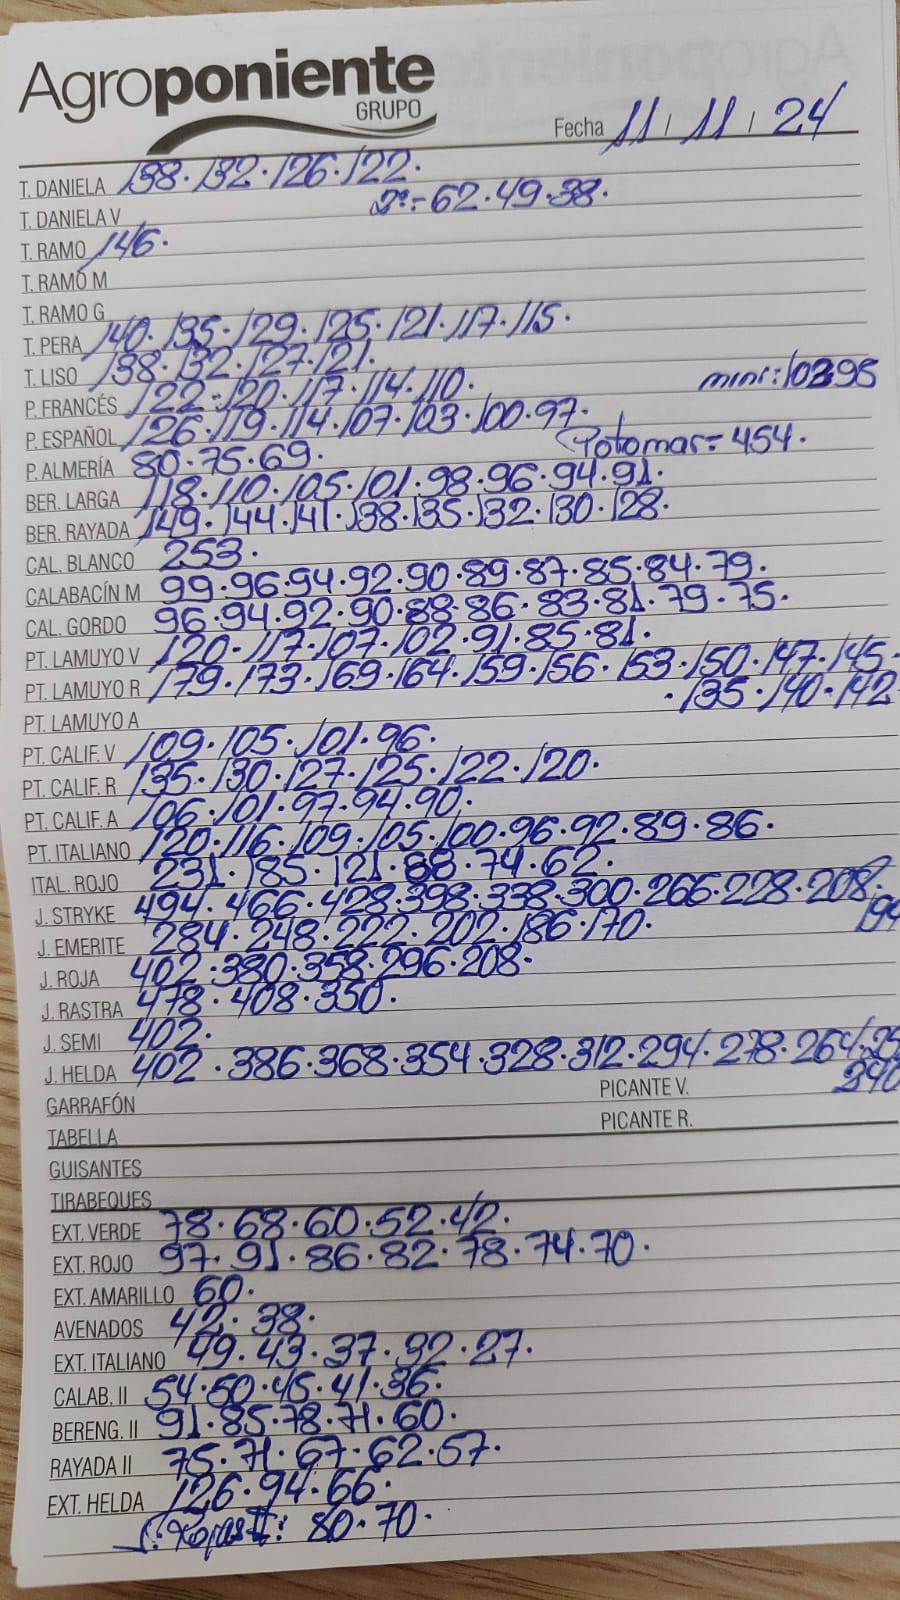 Agroponiente
GRUPO
Fecha 11 / 11 / 24
T. DANELA 138. 132. 126. 122.
T. DANELA V 2ª:- 62. 49. 38.
T. RAMO 146.
T. RAMO M
T. RAMO G
T. PERA 140. 135. 129. 125. 121. 117. 115.
T. LISO 138. 132. 127. 121.
P. FRANCÉS 122. 120. 117. 114. 110. mini: 95
P. ESPAÑOL 126. 119. 114. 107. 103. 100. 97.
P. ALMERÍA 80. 75. 69. Potomar= 454.
BER. LARGA 118. 110. 105. 101. 98. 96. 94. 91.
BER. RAYADA 149. 144. 141. 138. 135. 132. 130. 128.
CAL. BLANCO 253.
CALABACÍN M 99. 96. 94. 92. 90. 89. 87. 85. 84. 79.
CAL. GORDO 96. 94. 92. 90. 88. 86. 83. 81. 79. 75.
PT. LAMUYO V 120. 117. 107. 102. 91. 85. 81.
PT. LAMUYO R 179. 173. 169. 164. 159. 156. 153. 150. 147. 145.
. 135. 140. 142
PT. LAMUYO A
PT. CALIF. V 109. 105. 101. 96.
PT. CALIF. R 135. 130. 127. 125. 122. 120.
PT. CALIF. A 106. 101. 97. 94. 90.
PT. ITALIANO 120. 116. 109. 105. 100. 96. 92. 89. 86.
ITAL. ROJO 231. 185. 121. 88. 74. 62.
J. STRYKE 494. 466. 428. 398. 338. 300. 266. 228. 208.
194
J. EMERITE 284. 248. 222. 202. 186. 170.
J. ROJA 402. 380. 358. 296. 208.
J. RASTRA 478. 408. 350.
J. SEMI 402.
J. HELDA 402. 386. 368. 354. 328. 312. 294. 278. 264.
240
GARRAFÓN PICANTE V.
TABELLA PICANTE R.
GUISANTES
TIRABEQUES
EXT. VERDE 78. 68. 60. 52. 42.
EXT. ROJO 97. 91. 86. 82. 78. 74. 70.
EXT. AMARILLO 60.
AVENADOS 42. 38.
EXT. ITALIANO 49. 43. 37. 32. 27.
CALAB. II 54. 50. 45. 41. 36.
BERENG. II 91. 85. 78. 71. 60.
RAYADA II 75. 71. 67. 62. 57.
EXT. HELDA 126. 94. 66.
J. Rojas II: 80. 70.